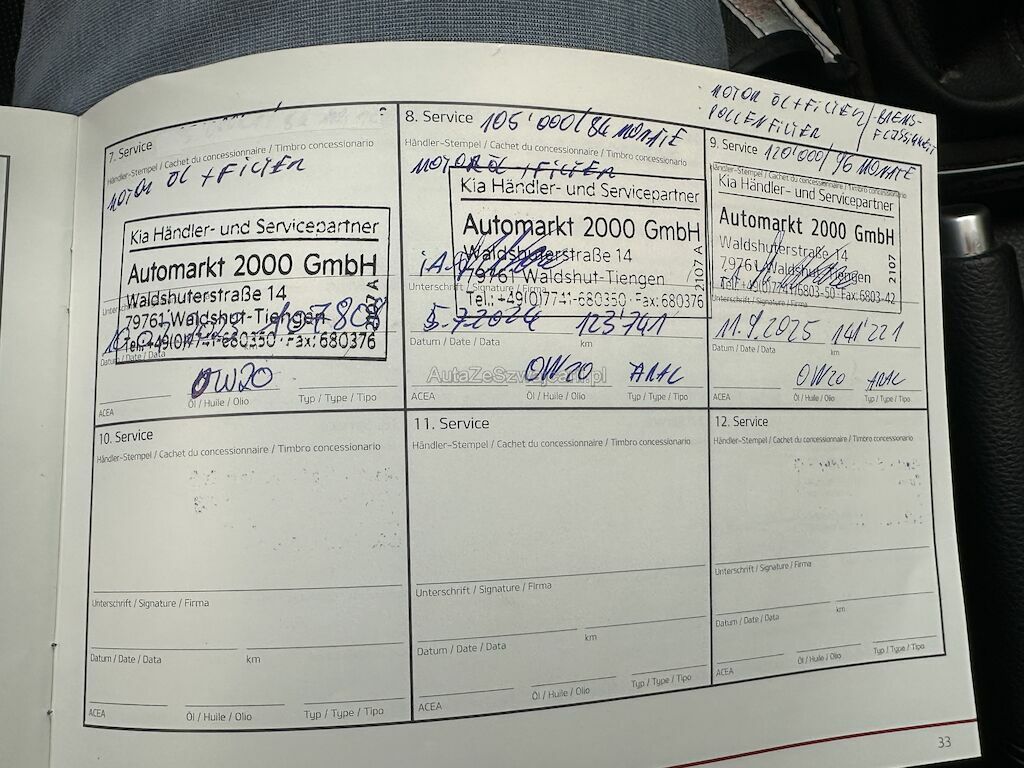 7. Service
Händler-Stempel / Cachet du concessionnaire / Timbro concessionario
MOTOR ÖL + FILTER
Kia Händler- und Servicepartner
Automarkt 2000 GmbH
Waldshuterstraße 14
79761 Waldshut-Tiengen
Tel.: +49(0)7741-680350 · Fax: 680376
2107 A
107808
Datum / Date / Data
0W20
ACEA
Öl / Huile / Olio
Typ / Type / Tipo
8. Service 105'000/84 MONATE
Händler-Stempel / Cachet du concessionnaire / Timbro concessionario
MOTOR ÖL + FILTER
Kia Händler- und Servicepartner
Automarkt 2000 GmbH
Waldshuterstraße 14
79761 Waldshut-Tiengen
Tel.: +49(0)7741-680350 · Fax: 680376
2107 A
i.A.
Unterschrift / Signature / Firma
5.7.2024 123'741
Datum / Date / Data
km
0W20 ARAL
ACEA
Öl / Huile / Olio
Typ / Type / Tipo
MOTOR ÖL + FILTER / BREMS-
POLLENFILTER FLÜSSIGKEIT
9. Service 120'000/96 MONATE
Händler-Stempel / Cachet du concessionnaire / Timbro concessionario
Kia Händler- und Servicepartner
Automarkt 2000 GmbH
Waldshuterstraße 14
79761 Waldshut-Tiengen
Fax: 6803-42
2107
Unterschrift / Signature / Firma
11.9.2025 141'221
Datum / Date / Data
km
0W20 ARAL
ACEA
Öl / Huile / Olio
Typ / Type / Tipo
AutaZeSzwajcarii.pl
10. Service
Händler-Stempel / Cachet du concessionnaire / Timbro concessionario
Unterschrift / Signature / Firma
Datum / Date / Data
km
ACEA
Öl / Huile / Olio
Typ / Type / Tipo
11. Service
Händler-Stempel / Cachet du concessionnaire / Timbro concessionario
Unterschrift / Signature / Firma
Datum / Date / Data
km
ACEA
Öl / Huile / Olio
Typ / Type / Tipo
12. Service
Händler-Stempel / Cachet du concessionnaire / Timbro concessionario
Unterschrift / Signature / Firma
Datum / Date / Data
km
ACEA
Öl / Huile / Olio
Typ / Type / Tipo
33